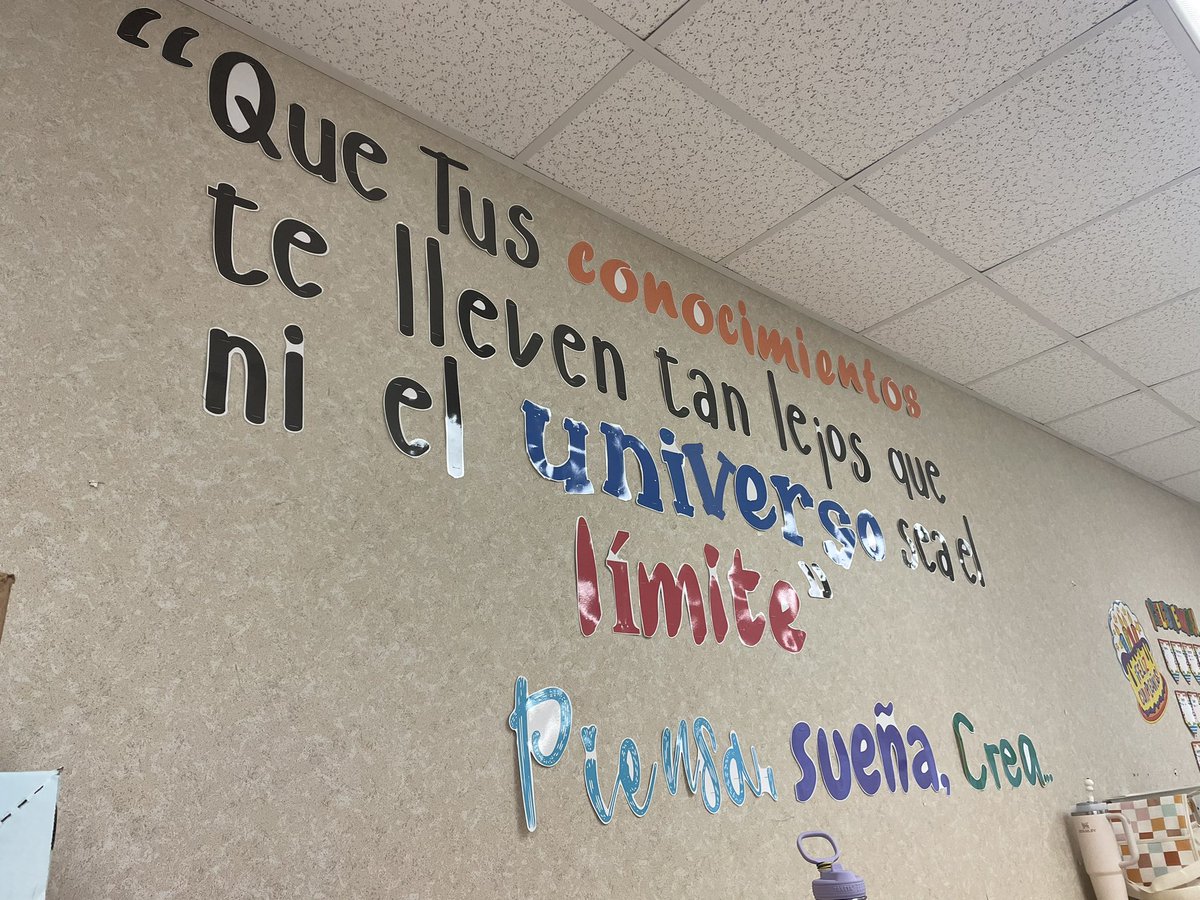 “Que Tus conocimientos
te lleven tan lejos que
ni el universo sea el
límite”
Piensa, sueña, Crea...
FELIZ
CUMPLEAÑOS
STANLEY